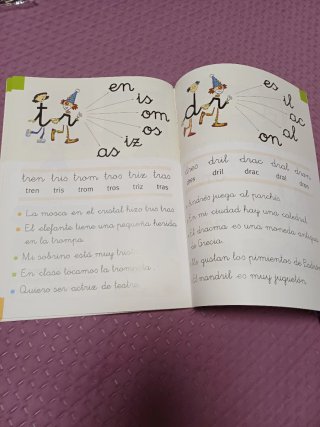 t r
en
is
om
os
iz
as
tren tris trom tros triz tras
tren tris trom tros triz tras
La mosca en el cristal hizo tris tras.
El elefante tiene una pequeña herida
en la trompa.
Mi sobrino está muy
En clase tocamos la trompeta.
Quiero ser actriz de teatro.
d r
es
il
ac
al
on
dres dril drac dral dron
dres dril drac dral dron
Andrés juega al parchís.
En mi ciudad hay una catedral.
El dracma es una moneda antigua
de Grecia.
Me gustan los pimientos de Padrón.
El mandril es muy juguetón.